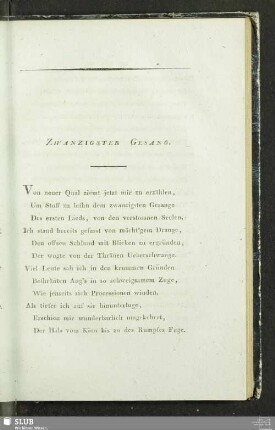 Zwanzigster Gesang.
Von neuer Qual ziemt jetzt mir zu erzählen,
Um Stoff zu leihn dem zwanzigsten Gesange
Des ersten Lieds, von den verstossnen Seelen.
Ich stand bereits gefasst von mächt'gem Drange,
Den offnen Schlund mit Blicken zu ergründen,
Der wogte von der Thränen Ueberschwange.
Viel Leute sah ich in den krummen Gründen
Bethränten Aug's in so schweigsamem Zuge,
Wie jenseits sich Processionen winden.
Als tiefer ich auf sie hinunterluge,
Erschien mir wunderbarlich umgekehret,
Der Hals vom Kinn bis an des Rumpfes Fuge.
SLUB
Wir führen Wissen.